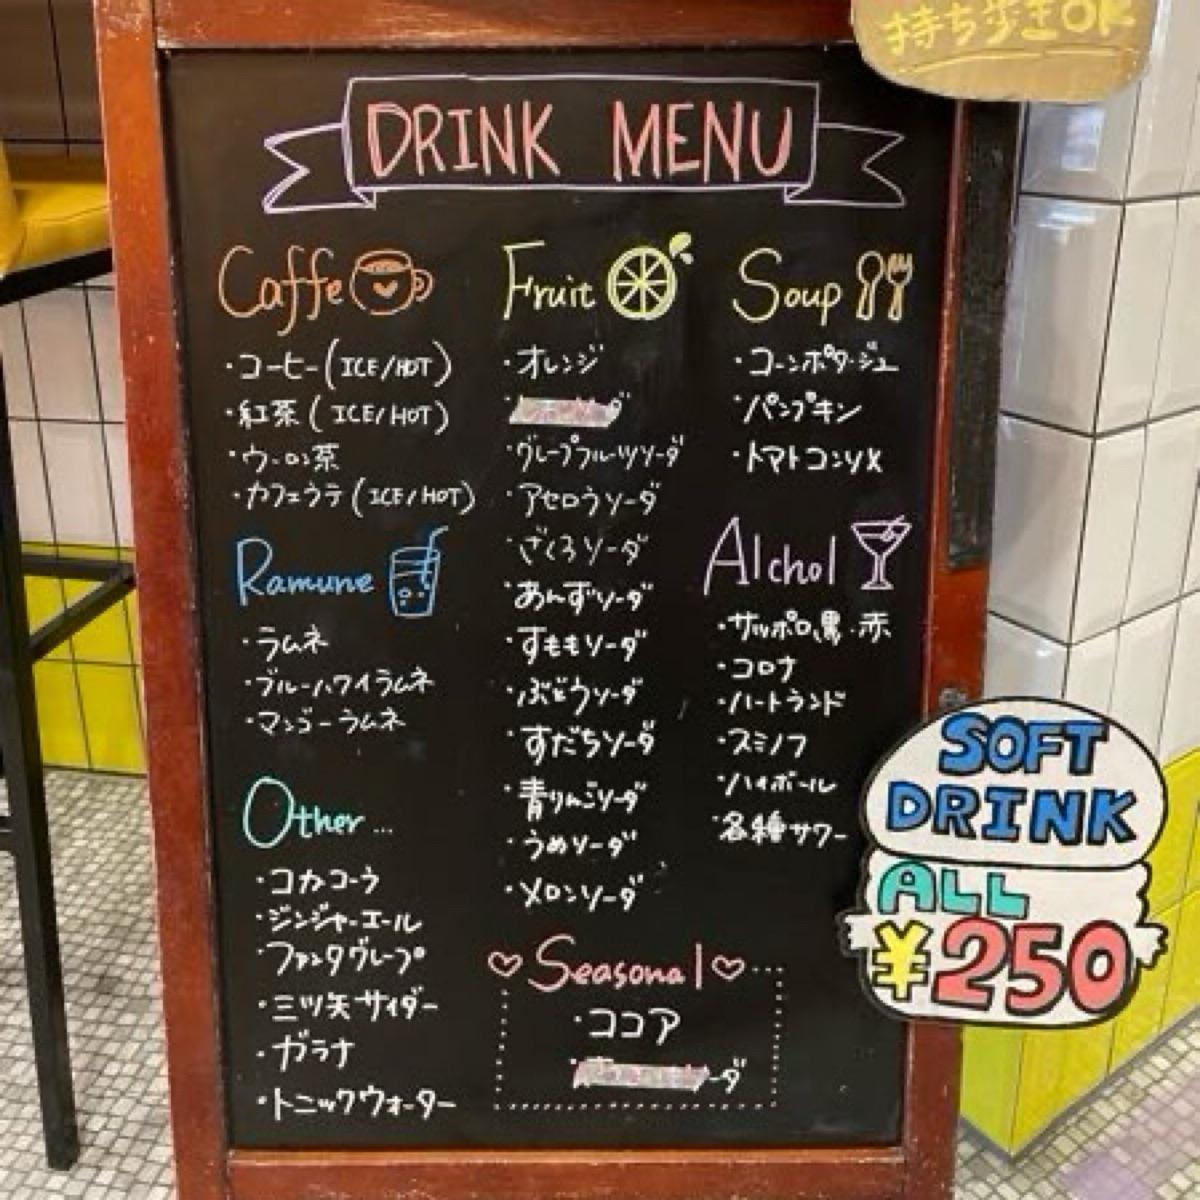 持ち歩きOK
DRINK MENU
Caffe
・コーヒー(ICE/HOT)
・紅茶(ICE/HOT)
・ウーロン茶
・カフェラテ(ICE/HOT)
Ramune
・ラムネ
・ブルーハワイラムネ
・マンゴーラムネ
Other...
・コカコーラ
・ジンジャーエール
・ファンタグレープ
・三ツ矢サイダー
・ガラナ
・トニックウォーター
Fruit
・オレンジ
・グレープフルーツソーダ
・アセロラソーダ
・ざくろソーダ
・あんずソーダ
・すももソーダ
・ぶどうソーダ
・すだちソーダ
・青りんごソーダ
・うめソーダ
・メロンソーダ
♡Seasonal♡
・ココア
ーダ
Soup
・コーンポタージュ
・パンプキン
・トマトコンソメ
Alchol
・サッポロ黒・赤
・コロナ
・ハートランド
・スミノフ
・ハイボール
・各種サワー
SOFT
DRINK
ALL
¥250